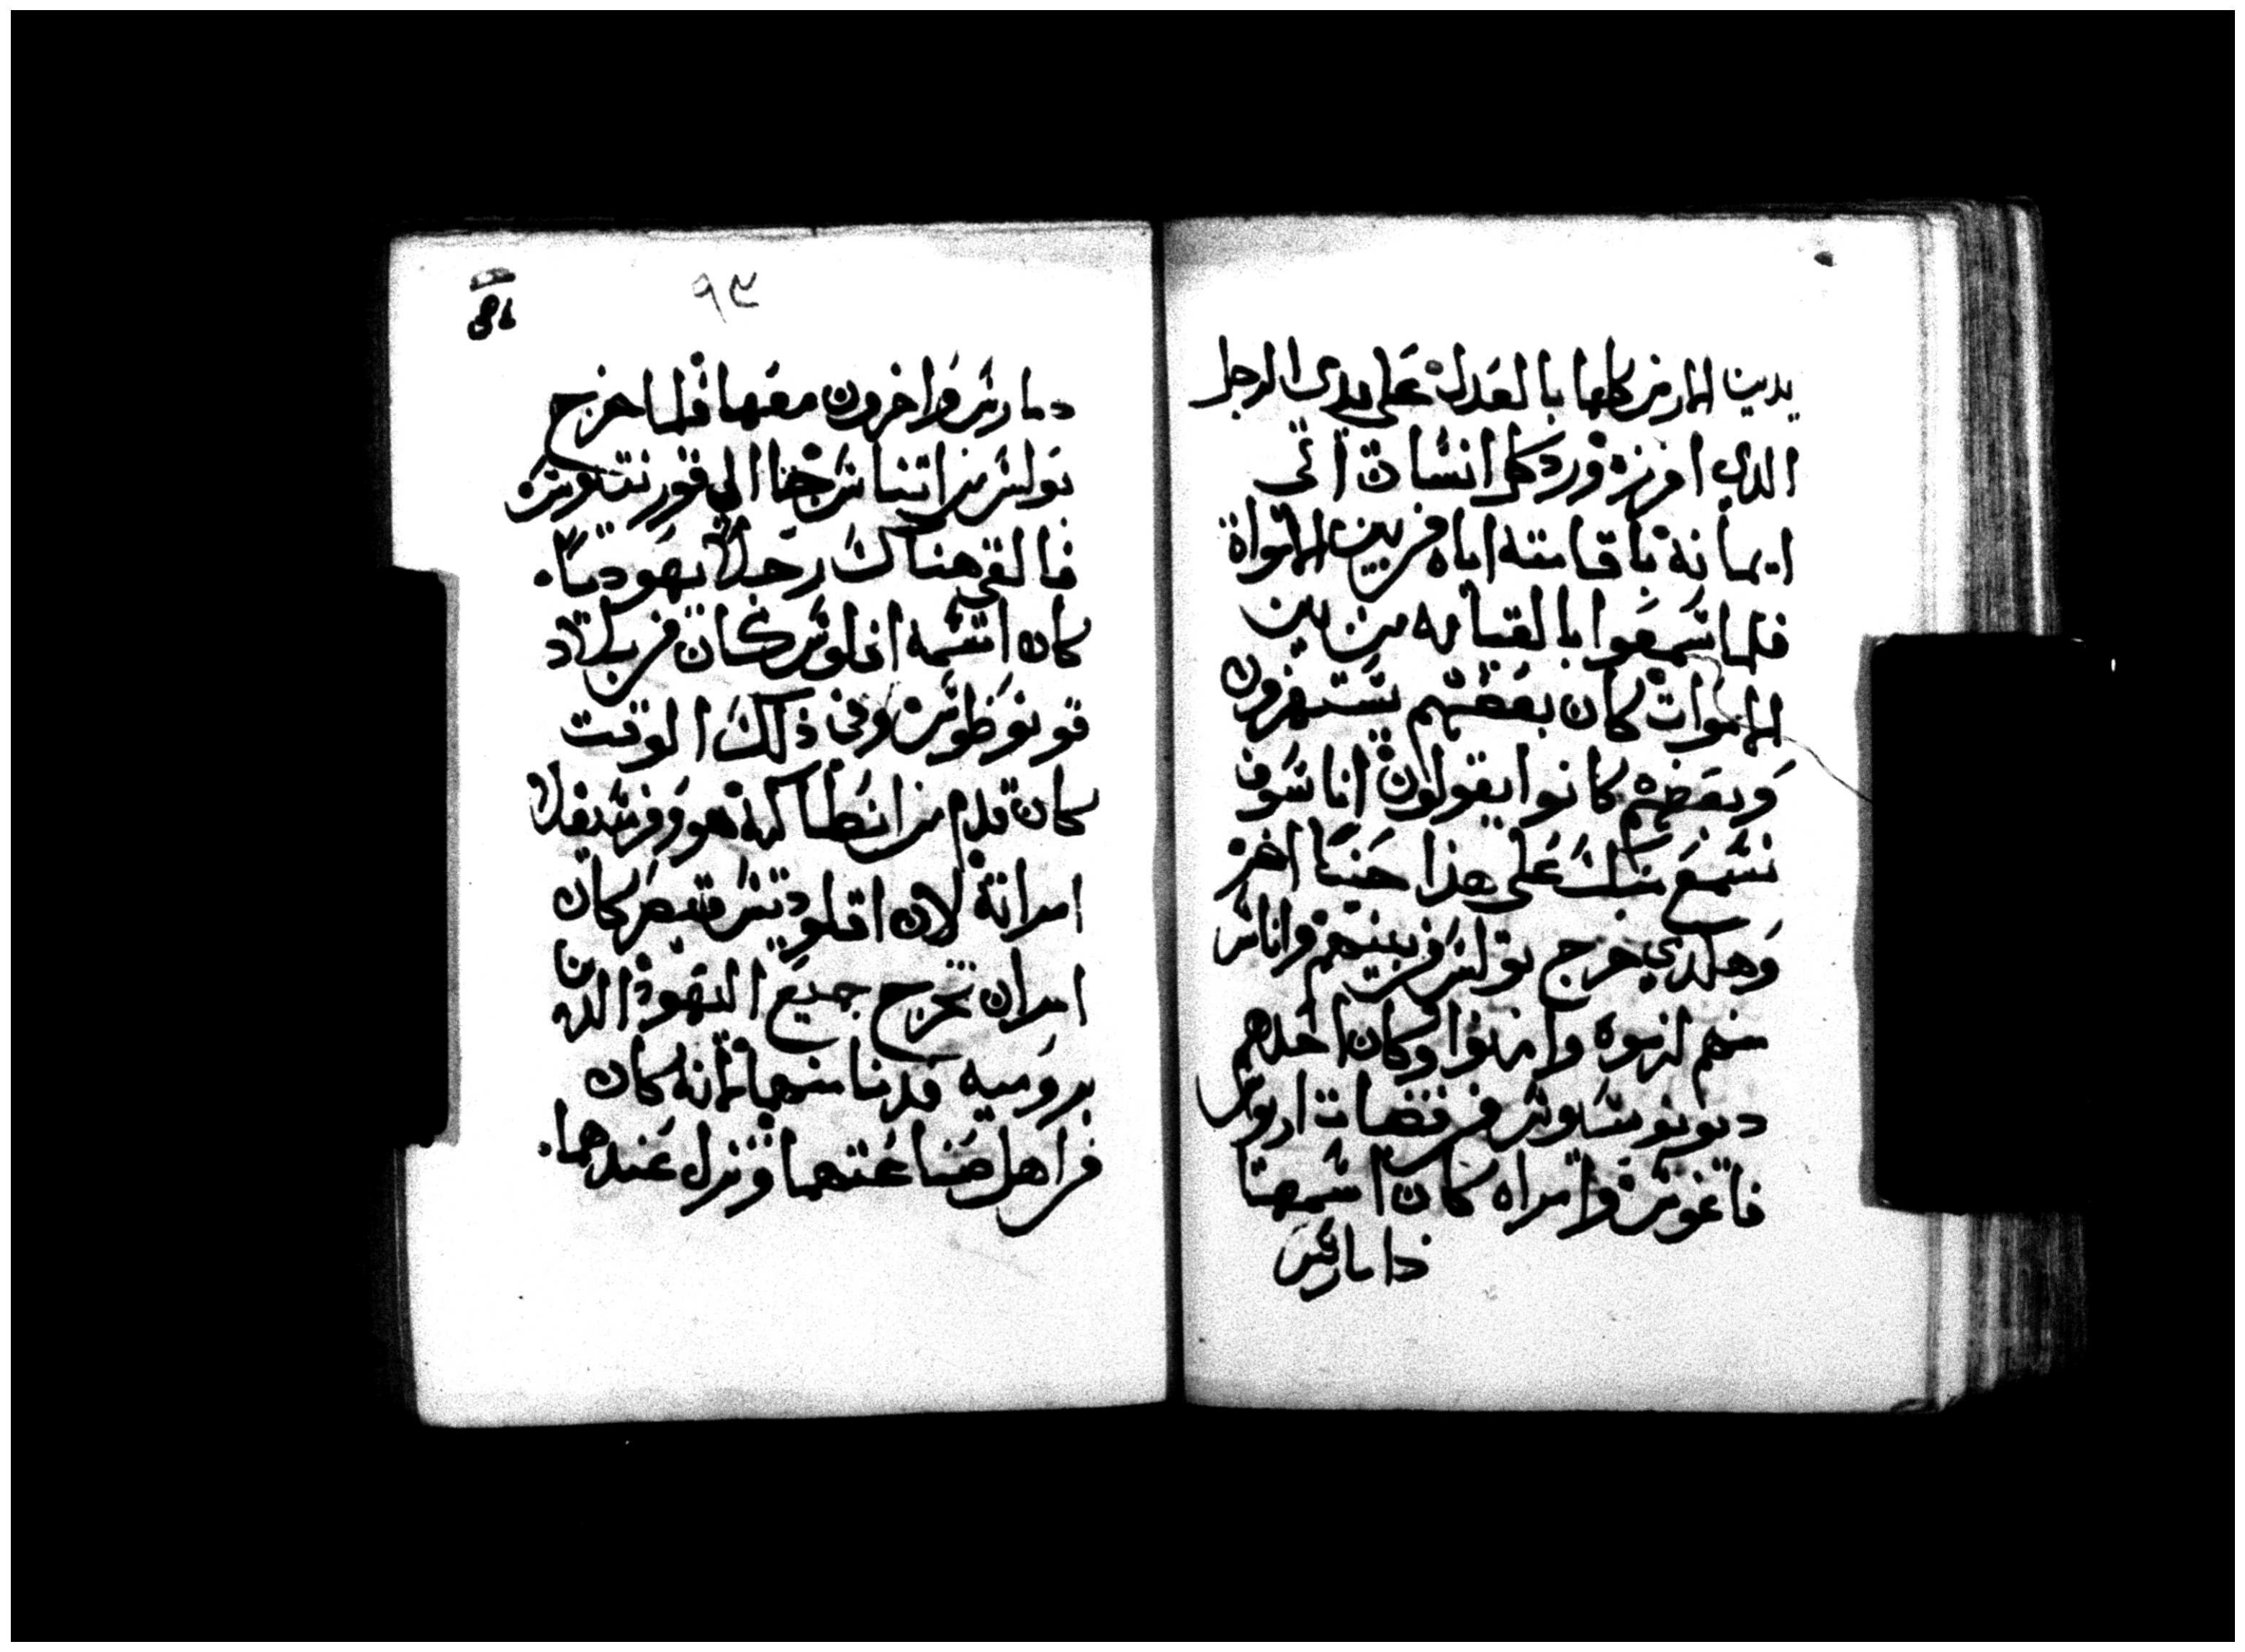 يدين الارض كلها بالعدل على يدى الرجل
الدي افرزه ورد كل انسان الي
ايمانه باقامته اياه من بين الاموات
فلما سمعوا بالقيامه من بين
الاموات كان بعضهم يستهزون
وبعضهم كانوا يقولون انا سوف
نسمع منك على هذا حينا اخر
وهكدي خرج بولس من بينهم واناس
منهم لزموه وامنوا وكان احدهم
ديونوسيوس من قضات اريوس
فاغوس وامراه كان اسمها
دامارس
٩٣
دمارس واخرون معها فلما خرج
بولس من اتيناس جا الي قورنتيوس
فالقي هناك رجلا يهوديا.
كان اسمه اقلوس كان من بلاد
قونوطوس وفي ذلك الوقت
كان قدم من انطاكيه هو وفرسقلا
امراته لان اقلوديس قيصر كان
امر ان تخرج جميع اليهود الدين
بروميه فدنا منهما لانه كان
من اهل صناعتهما ونزل عندهما.